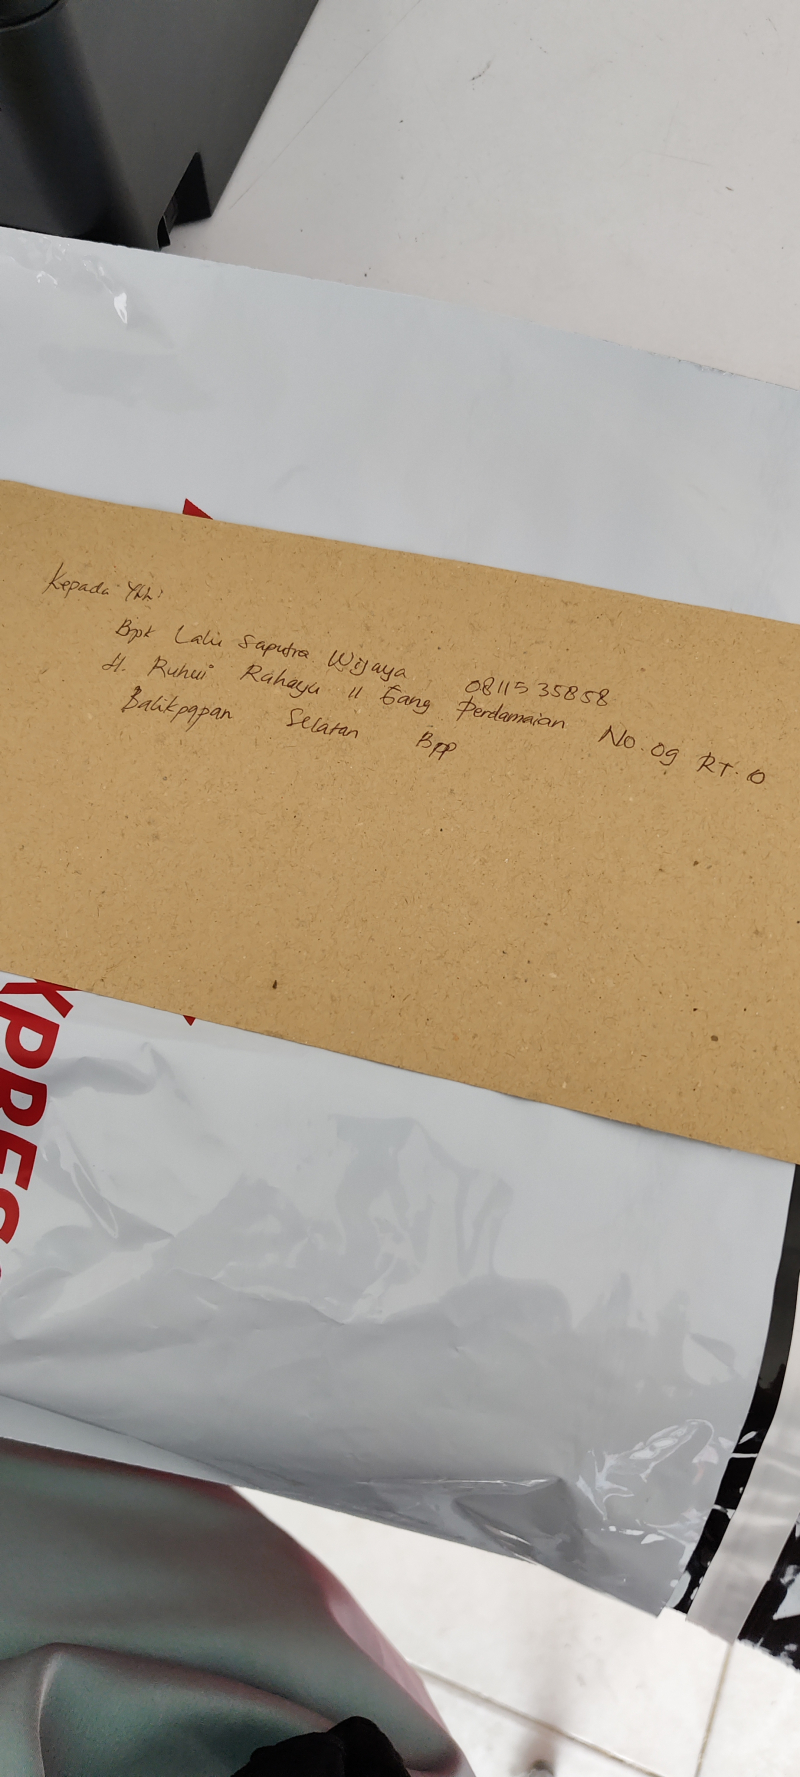 Kepada Yth:
Bpk Lalu Saputra Wijaya 0811535858
Jl. Ruhui Rahayu 11 Gang Perdamaian No. 09 RT. 10
Balikpapan Selatan Bpp
XPRESS